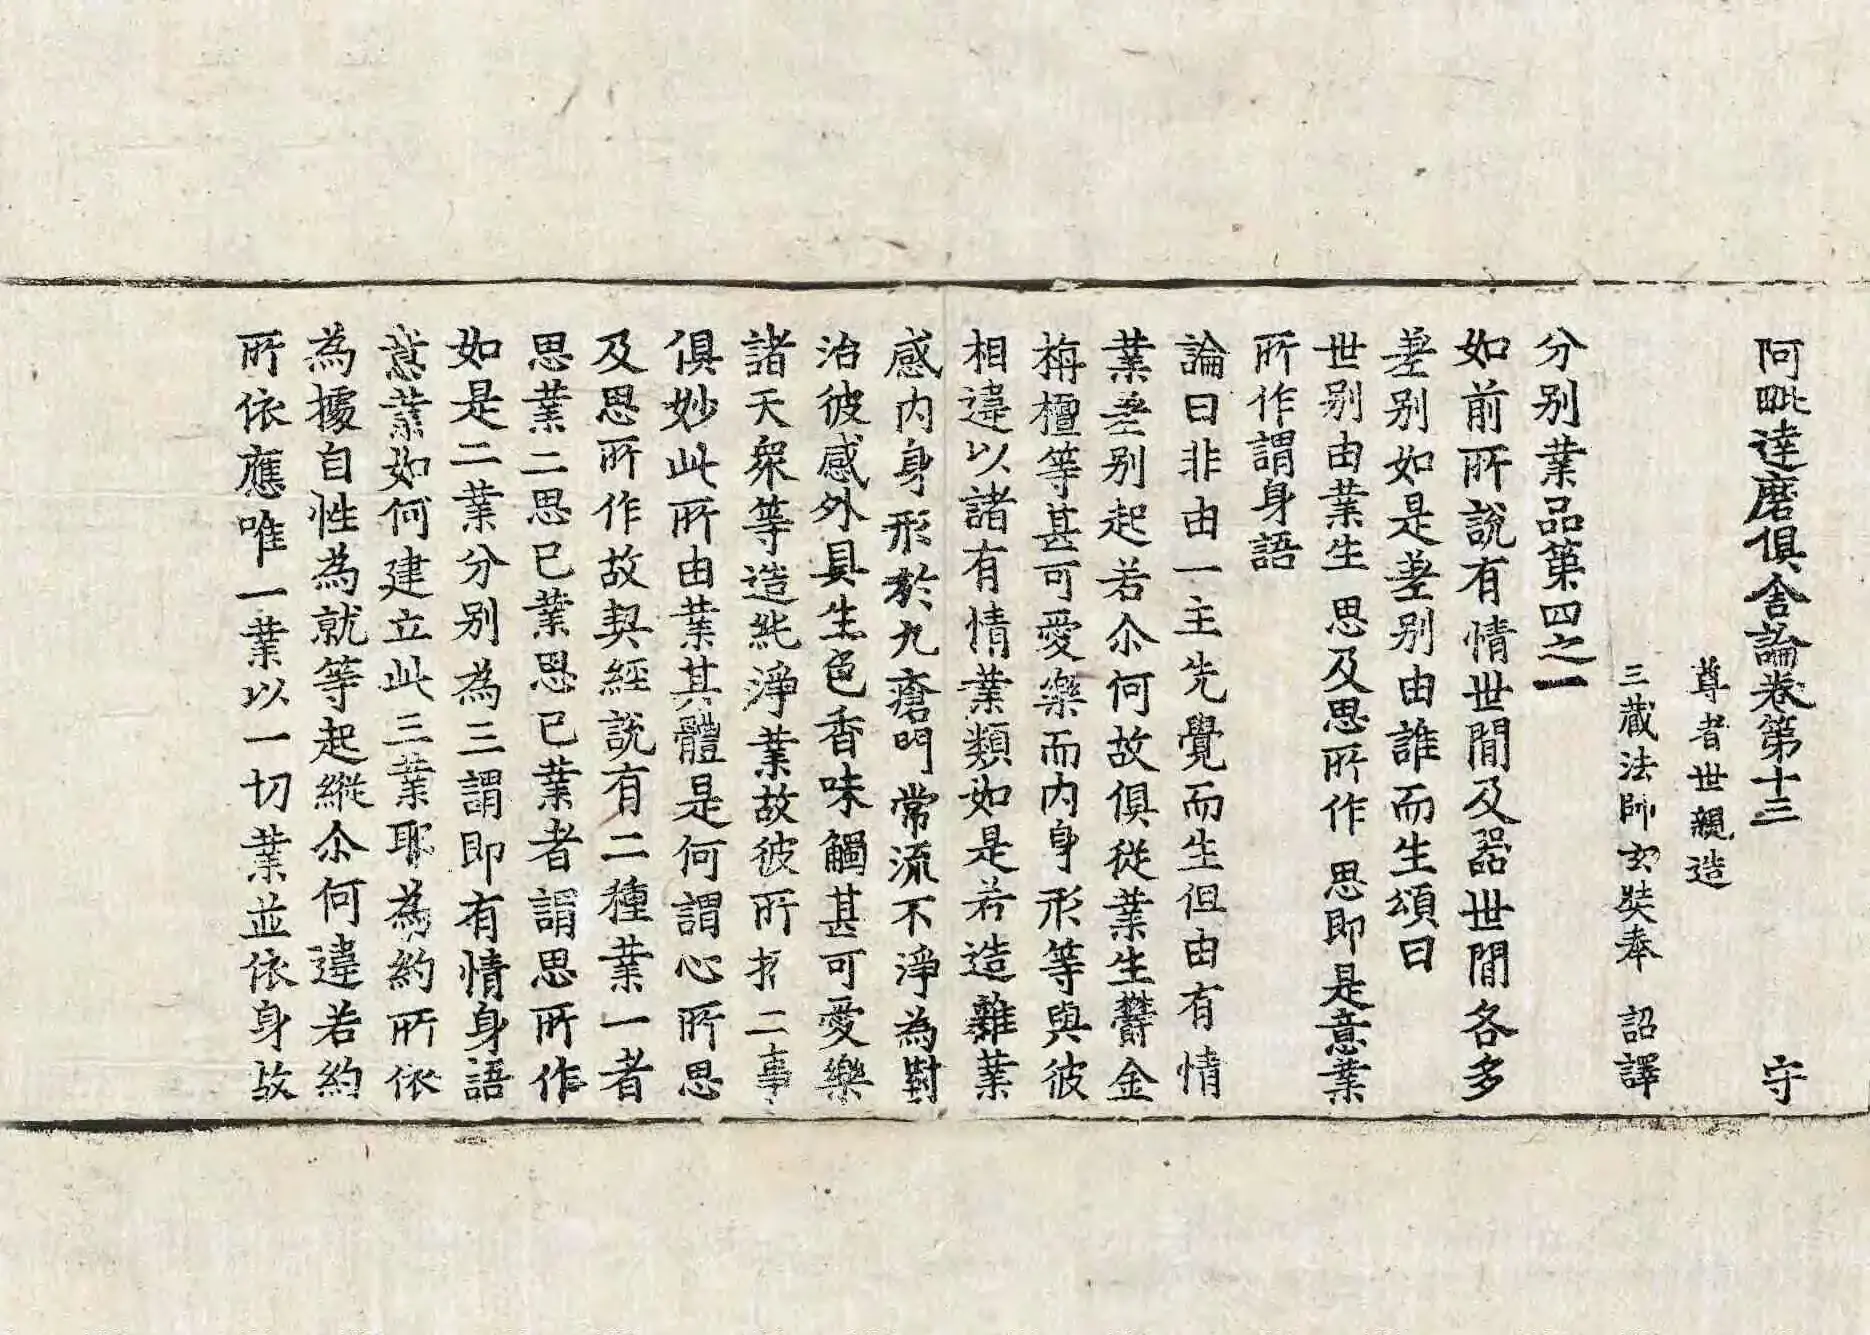 阿毗達磨俱舍論卷第十三 守
尊者世親造
三藏法師玄奘奉 詔譯
分别業品第四之一
如前所說有情世間及器世間各多
差别如是差别由誰而生頌曰
世别由業生 思及思所作 思即是意業
所作謂身語
論曰非由一主先覺而生但由有情
業差别起若尒何故俱從業生鬱金
栴檀等甚可愛樂而内身形等與彼
相違以諸有情業類如是若造雜業
感内身形於九瘡門常流不淨為對
治彼感外具生色香味觸甚可愛樂
諸天衆等造純淨業故彼所招二事
俱妙此所由業其體是何謂心所思
及思所作故契經說有二種業一者
思業二思已業思已業者謂思所作
如是二業分别為三謂即有情身語
意業如何建立此三業耶為約所依
為據自性為就等起縱尒何違若約
所依應唯一業以一切業並依身故